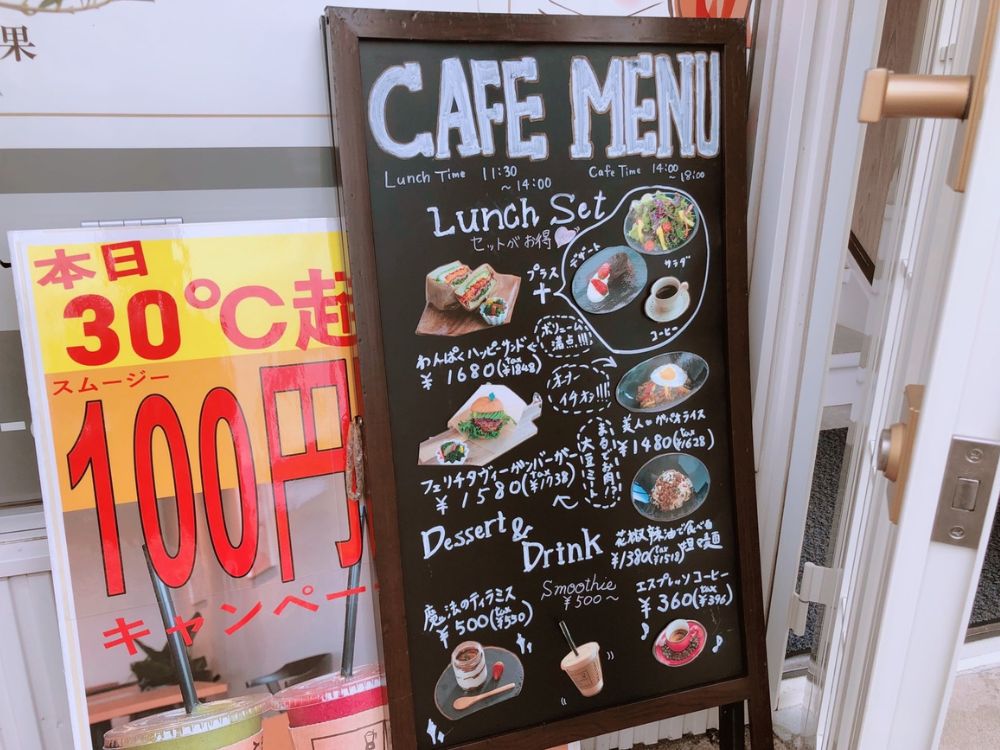 果
本日
30℃
スムージー
100円
キャンペー
CAFE MENU
Lunch Time 11:30
~ 14:00
Cafe Time 14:00
~ 18:00
Lunch Set
セットがお得
プラス
+
デザート
サラダ
コーヒー
わんぱくハッピーサンド
¥1680(tax ¥1848)
ボリューム
満点!!!
オーナー
イチオシ!!!
美人のガパオライス
¥1480(tax ¥1628)
フェリチタヴィーガンバーガー
¥1580(tax ¥1738)
まるでお肉!?
大豆ミート
花椒辣油で食べる
¥1380(tax ¥1518) 担々麺
Dessert &
Drink
魔法のティラミス
¥500(tax ¥550)
Smoothie
¥500~
エスプレッソコーヒー
¥360(tax ¥396)